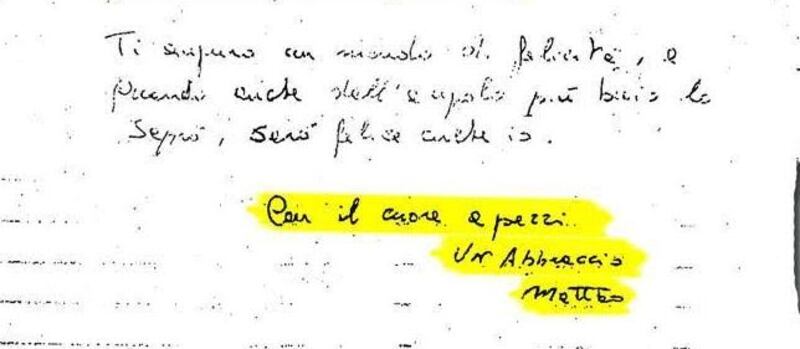 Ti auguro un mondo di felicità, e
quando anche dall'angolo più buio lo
saprò, sarò felice anche io.
Con il cuore a pezzi
Un Abbraccio
Matteo